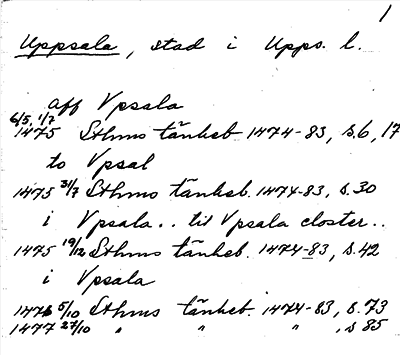 1
Uppsala, stad i Upps. l.
aff Vpsala
6/5, 1/7
1475 Sthms tänkeb. 1474-83, s. 6, 17
to Vpsal
1475 31/7 Sthms tänkeb. 1474-83, s. 30
i Vpsala.. til Vpsala closter..
1475 19/12 Sthms tänkeb. 1474-83, s. 42
i Vpsala
1476 5/10 Sthms tänkeb. 1474-83, s. 73
1477 27/10 " " " , s 85